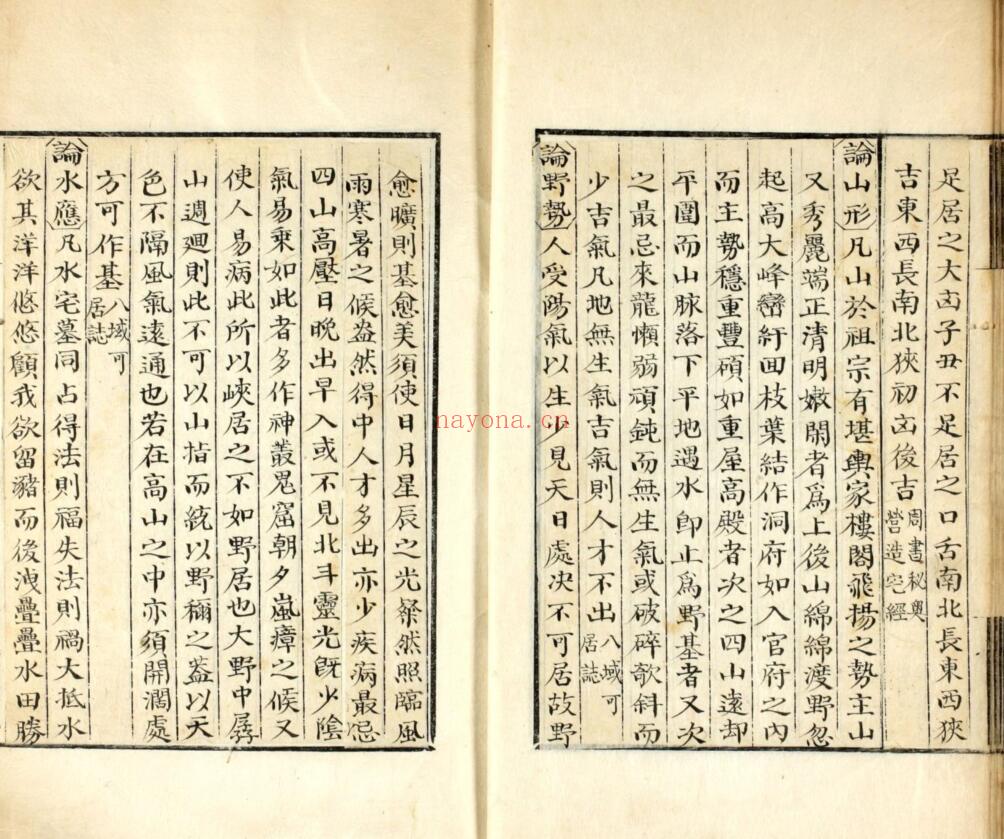 足居之大凶子丑不足居之口舌南北長東西狹
吉東西長南北狹初凶後吉周書秘奧營造宅經
論山形凡山於祖宗有堪輿家樓閣飛揚之勢主山
又秀麗端正清明嫩閑者爲上後山綿綿渡野忽
起高大峰巒紆回枝葉結作洞府如入官府之內
而主勢穩重豐碩如重屋高殿者次之四山遠却
平圍而山脉落下平地遇水卽止爲野基者又次
之最忌來龍懶弱頑鈍而無生氣或破碎欹斜而
少吉氣凡地無生氣吉氣則人才不出八域可居誌
論野勢人受陽氣以生少見天日處决不可居故野
愈曠則基愈美須使日月星辰之光粲然照臨風
雨寒暑之候盎然得中人才多出亦少疾病最忌
四山高壓日晚出早入或不見北斗靈光旣少陰
氣易乘如此者多作神叢鬼窟朝夕嵐瘴之候又
使人易病此所以峽居之不如野居也大野中孱
山週廻則此不可以山指而統以野稱之盖以天
色不隔風氣遠通也若在高山之中亦須開濶處
方可作基八域可居誌
論水應凡水宅墓同占得法則福失法則禍大抵水
欲其洋洋悠悠顧我欲留豬而後洩疊疊水田勝
nayona.cn